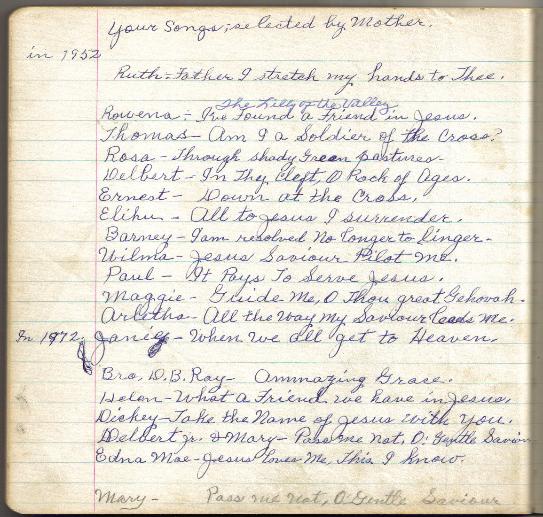 Your Songs, selected by Mother.
in 1952
Ruth - Father I stretch my hands to Thee.
The Lilly of the Valley
Rowena - I've Found a Friend in Jesus.
Thomas - Am I a Soldier of the Cross?
Rosa - Through shady Green pastures -
Delbert - In Thy Cleft, O Rock of Ages.
Ernest - Down at the Cross.
Elihu - All to Jesus I surrender.
Barney - I am resolved No longer to linger -
Wilma - Jesus Saviour Pilot Me.
Paul - It Pays To Serve Jesus.
Maggie - Guide Me, O Thou great Jehovah.
Aretha - All the Way My Saviour leads Me.
In 1972. Janie - When we all get to Heaven.
Bro. D.B. Ray - Ammazing Grace.
Helen - What a Friend we have in Jesus.
Dickey - Take the Name of Jesus With You.
Delbert jr. & Mary - Pass me Not, O. Gentle Saviour
Edna Mae - Jesus Loves Me, This I know.
Mary - Pass me not, O Gentle Saviour